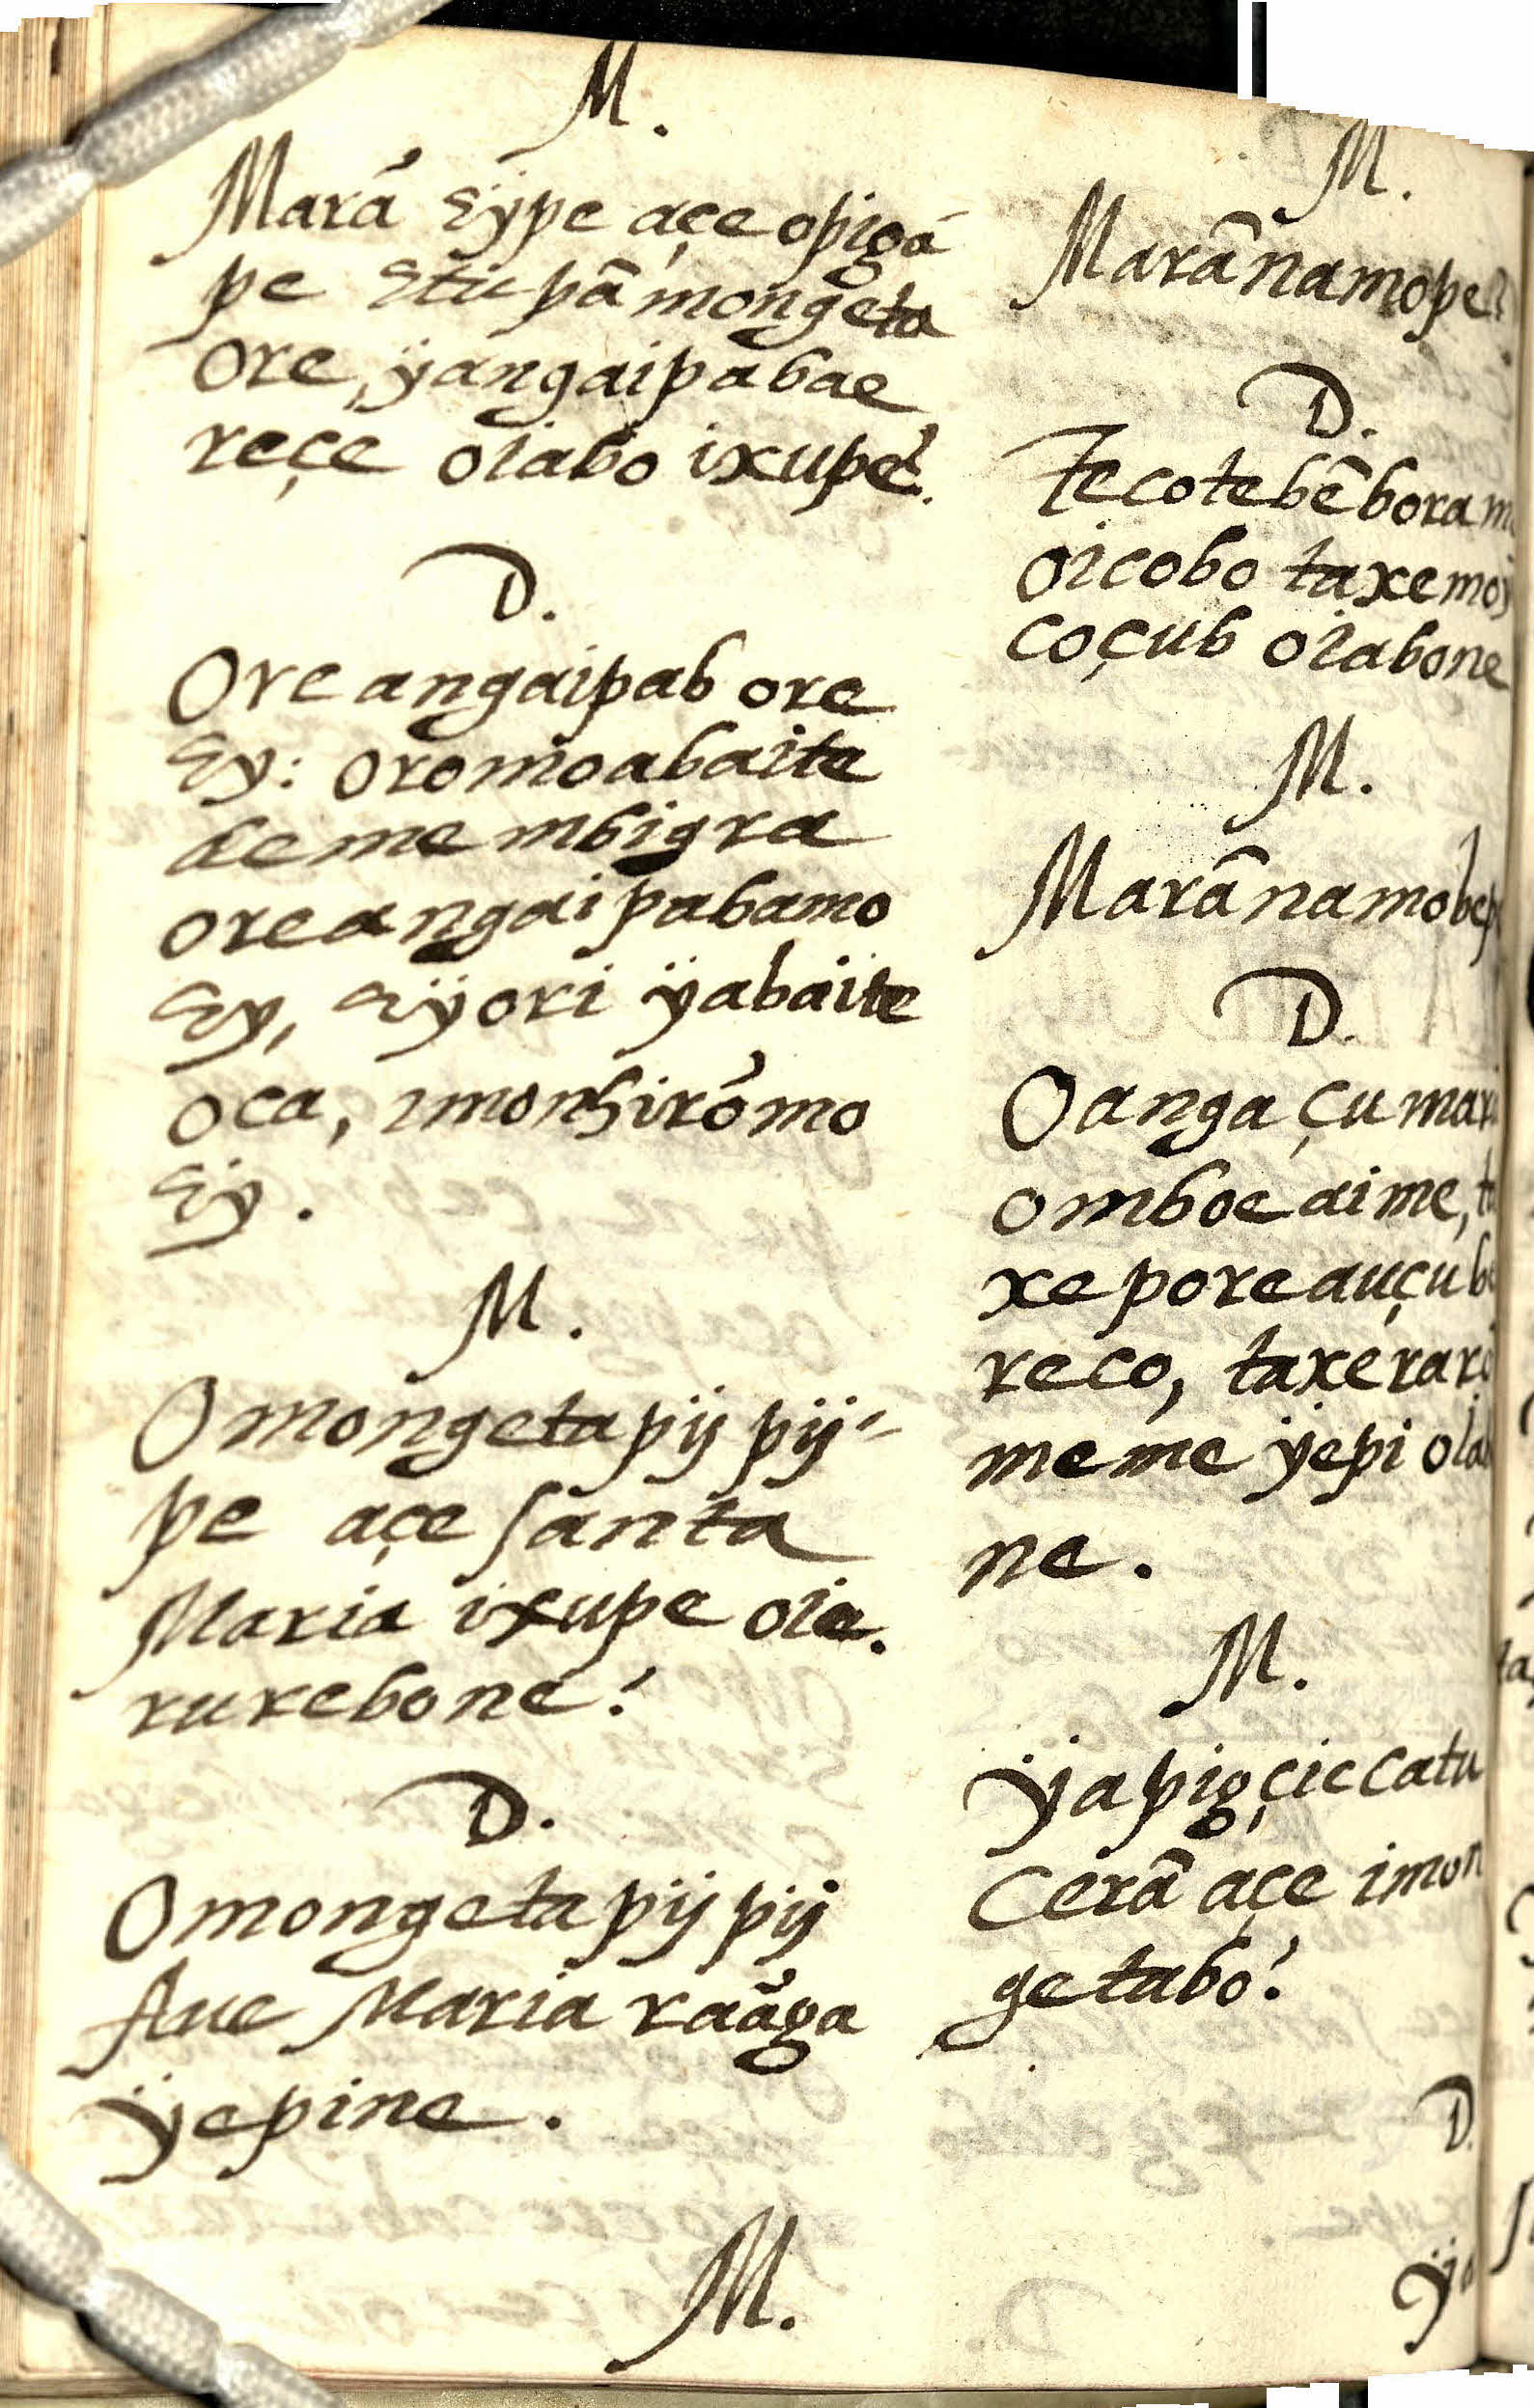 M.
Marã eỹpe açe opigá
pe Etupã mongeta
ore, ÿangaipabae
reçe oiabo ixupe?
D.
Ore angaipab ore
Ey: oromoabaite
de me mbigra
ore angaipabamo
Ey, eÿori ÿabaite
oca, imonhirõmo
Eÿ.
M.
Omongeta pÿ pÿ-
pe açe Santa
Maria ixupe oie.
rurebone?
D.
Omongeta pÿ pÿ
Aue Maria raãga
ÿepine.
M.
M.
Marãnamope?
D.
Tecotebẽbora
oicobo taxe
coçub oiabone
M.
Marãnamobe
D.
Oanga çu
omboe aime,
xe poreauçu
reco, taxe
meme ÿepi
ne.
M.
ÿapigçic catu
Cerã açe imon
getabo?
D.